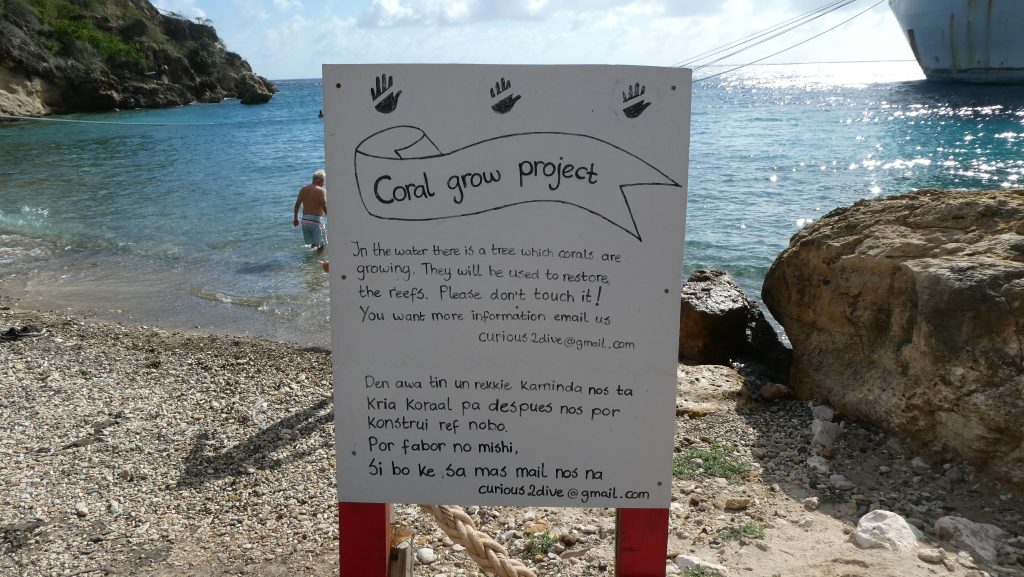 Coral grow project
In the water there is a tree which corals are
growing. They will be used to restore
the reefs. Please don't touch it!
You want more information email us
curious2dive@gmail.com
Den awa tin un rekkie kaminda nos ta
kria koraal pa despues nos por
konstrui ref nobo.
Por fabor no mishi,
Si bo ke sa mas mail nos na
curious2dive@gmail.com